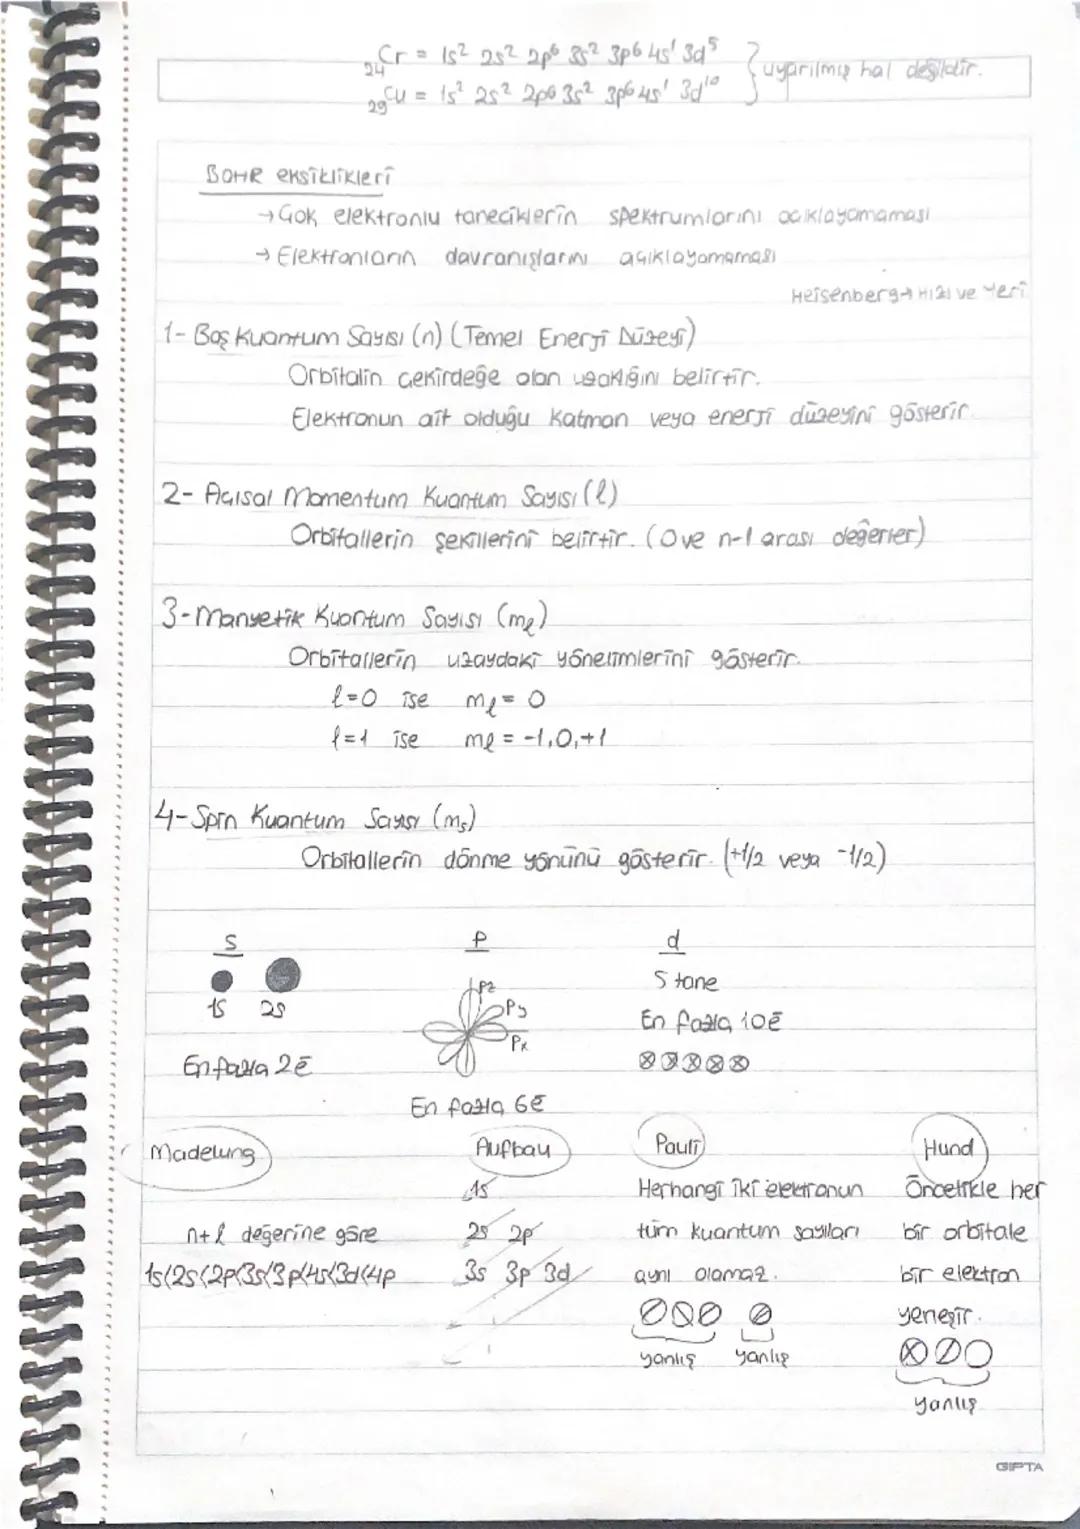 ₂₄Cr = 1s² 2s² 2p⁶ 3s² 3p⁶ 4s¹ 3d⁵
₂₉Cu = 1s² 2s² 2p⁶ 3s² 3p⁶ 4s¹ 3d¹⁰
} uyarılmış hal değildir.
BOHR eksiklikleri
→ Çok elektronlu taneciklerin spektrumlarını açıklayamaması
→ Elektronların davranışlarını açıklayamaması
Heisenberg → Hızı ve Yeri
1- Baş Kuantum Sayısı (n) (Temel Enerji Düzeyi)
Orbitalin çekirdeğe olan uzaklığını belirtir.
Elektronun ait olduğu katman veya enerji düzeyini gösterir.
2- Açısal Momentum Kuantum Sayısı (ℓ)
Orbitallerin şekillerini belirtir. (0 ve n-1 arası değerler)
3- Manyetik Kuantum Sayısı (mℓ)
Orbitallerin uzaydaki yönelimlerini gösterir.
ℓ=0 ise mℓ = 0
ℓ=1 ise mℓ = -1,0,+1
4- Spin Kuantum Sayısı (ms)
Orbitallerin dönme yönünü gösterir. (+1/2 veya -1/2)
s p d
1s 2s
Pz
Py
Px
5 tane
En fazla 10ē
En fazla 2ē
En fazla 6ē
Madelung
n+ℓ değerine göre
1s<2s<2p<3s<3p<4s<3d<4p
Aufbau
1s
2s 2p
3s 3p 3d
Pauli
Herhangi iki elektronun
tüm kuantum sayıları
aynı olamaz.
yanlış yanlış
Hund
Öncelikle her
bir orbitale
bir elektron
yerleşir.
yanlış
GIPTA